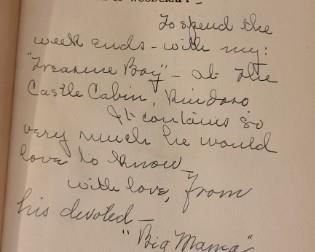 WOODCRAFT –
To spend the
week ends – with my:
"Treasure Boy" – at the
Castle Cabin,
It contains so
very much he would
love to know –
with love, from
his devoted –
"Big Mama"